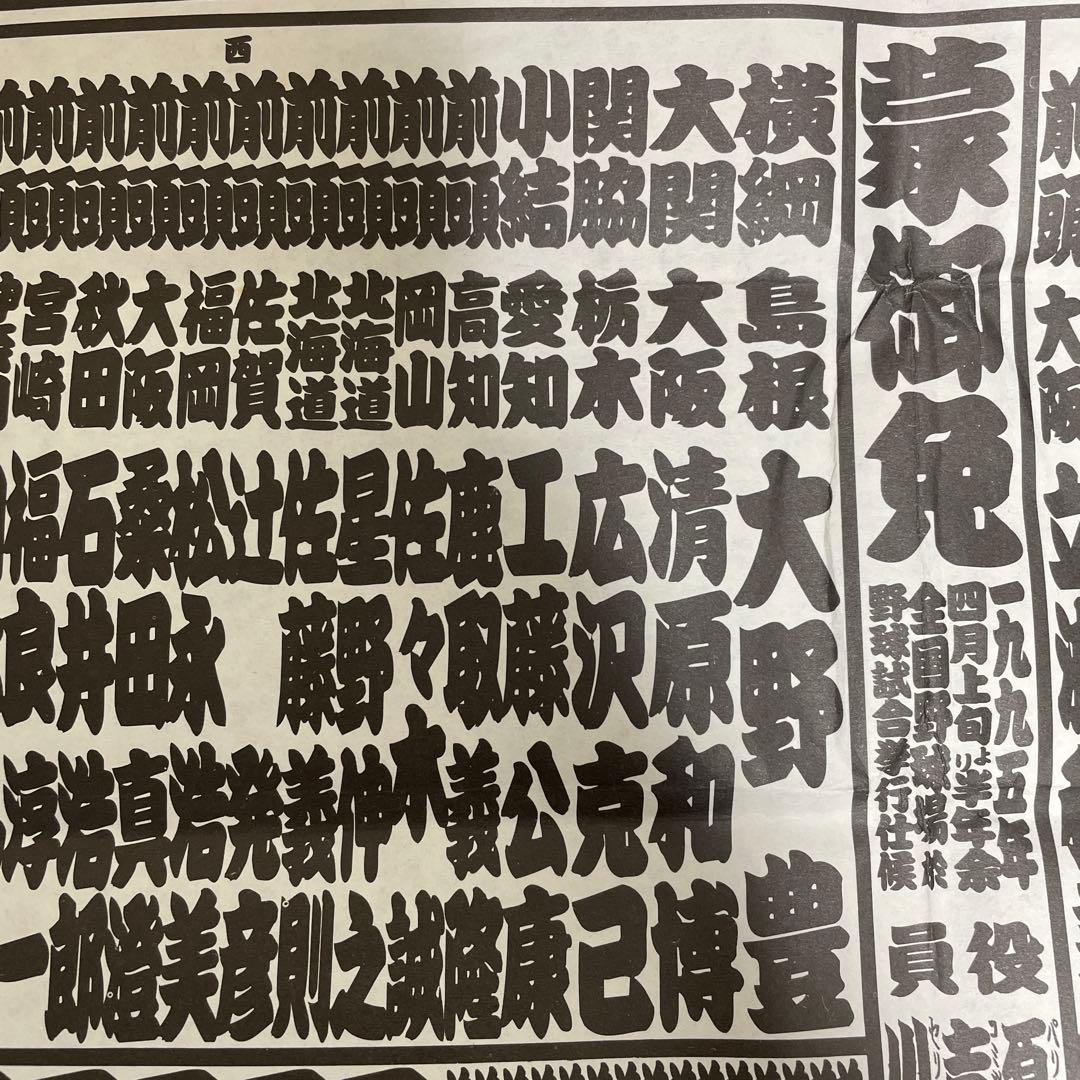 前頭 大阪
蒙御免
一九九五年
四月上旬より半年余
全国野球場於
野球試合挙行仕候
役員
西
横綱 島根 大野豊
大関 大阪 清原和博
関脇 栃木 広沢克己
小結 愛知 工藤公康
前頭 高知 鹿取義隆
前頭 岡山 佐々木誠
前頭 北海道 星野伸之
前頭 北海道 佐藤義則
前頭 佐賀 辻発彦
前頭 福岡 松永浩美
前頭 大阪 桑田真澄
前頭 秋田 石井浩郎
前頭 宮崎 福良淳一